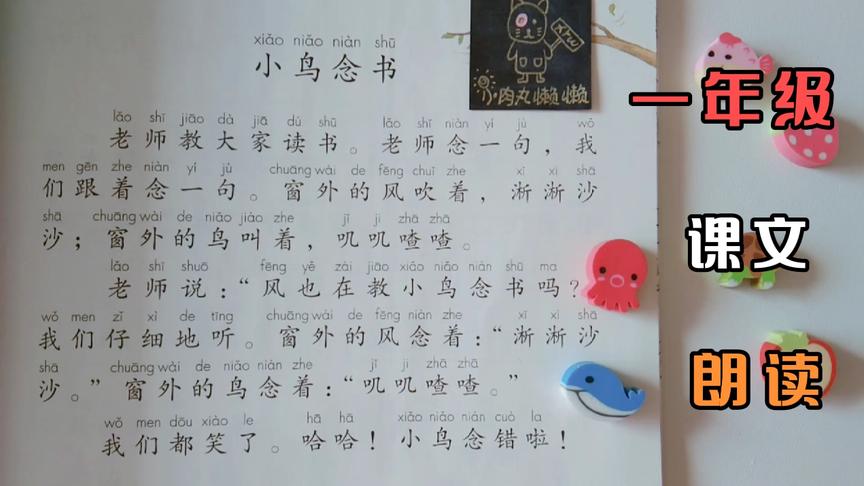 xiǎo niǎo niàn shū
小鸟念书
lǎo shī jiāo dà jiā dú shū lǎo shī niàn yí jù wǒ
老师教大家读书。老师念一句，我
men gēn zhe niàn yí jù chuāng wài de fēng chuī zhe xī xī shā
们跟着念一句。窗外的风吹着，淅淅沙
shā chuāng wài de niǎo jiào zhe jī ji zhā zhā
沙；窗外的鸟叫着，叽叽喳喳。
lǎo shī shuō fēng yě zài jiāo xiǎo niǎo niàn shū ma
老师说：“风也在教小鸟念书吗？
wǒ men zǐ xì de tīng chuāng wài de fēng niàn zhe xī xī shā
我们仔细地听。窗外的风念着：“淅淅沙
shā chuāng wài de niǎo niàn zhe jī ji zhā zhā
沙。”窗外的鸟念着：“叽叽喳喳。”
wǒ men dōu xiào le hā hā xiǎo niǎo niàn cuò la
我们都笑了。哈哈！小鸟念错啦！
小肉丸懒懒
一年级
课文
朗读